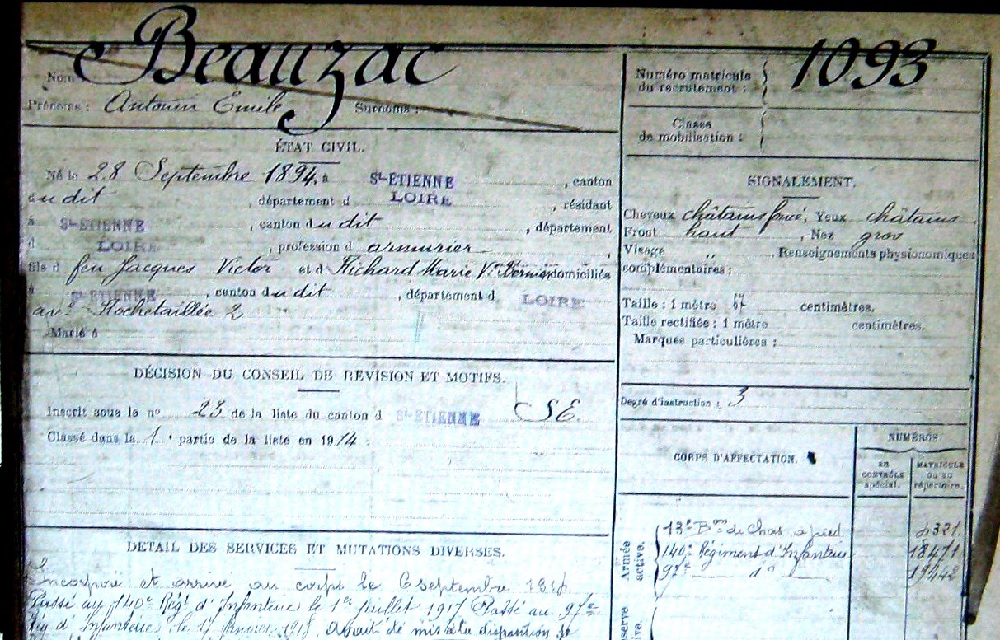 Nom Beauzac
Prénoms : Antonin Emile Surnoms :
Numéro matricule du recrutement : 1093
Classe de mobilisation :
ÉTAT CIVIL.
Né le 28 Septembre 1894, à St-ETIENNE, canton
dudit, département d LOIRE, résidant
à St-ETIENNE, canton dudit, département
d LOIRE, profession d armurier
fils d feu Jacques Victor et d Richard Marie Ve domiciliés
à St-ETIENNE, canton dudit, département d LOIRE
av. Rochetaillée 2
Marié à
SIGNALEMENT.
Cheveux châtains foncé, Yeux châtains
Front haut, Nez gros
Visage " Renseignements physionomiques
complémentaires :
Taille : 1 mètre centimètres.
Taille rectifiée : 1 mètre centimètres.
Marques particulières :
Degré d'instruction : 3
DÉCISION DU CONSEIL DE RÉVISION ET MOTIFS.
Inscrit sous le n° 23 de la liste du canton d St-ETIENNE SE.
Classé dans la 1 partie de la liste en 1914 :
CORPS D'AFFECTATION.
NUMÉROS
AU CONTRÔLE spécial.
MATRICULE OU AU répertoire.
Armée active.
13e Bon de Chas. à pied 2321
140e Régiment d'Infanterie 13471
97e d° 19442
DÉTAIL DES SERVICES ET MUTATIONS DIVERSES.
Incorporé et arrivé au corps le 6 septembre 1914
Passé au 140e Régt d'Infanterie le 1er Juillet 1917 Passé au 97e
Rég d'Infanterie le 17 Janvier 1918. Avait été mis à la disposition de